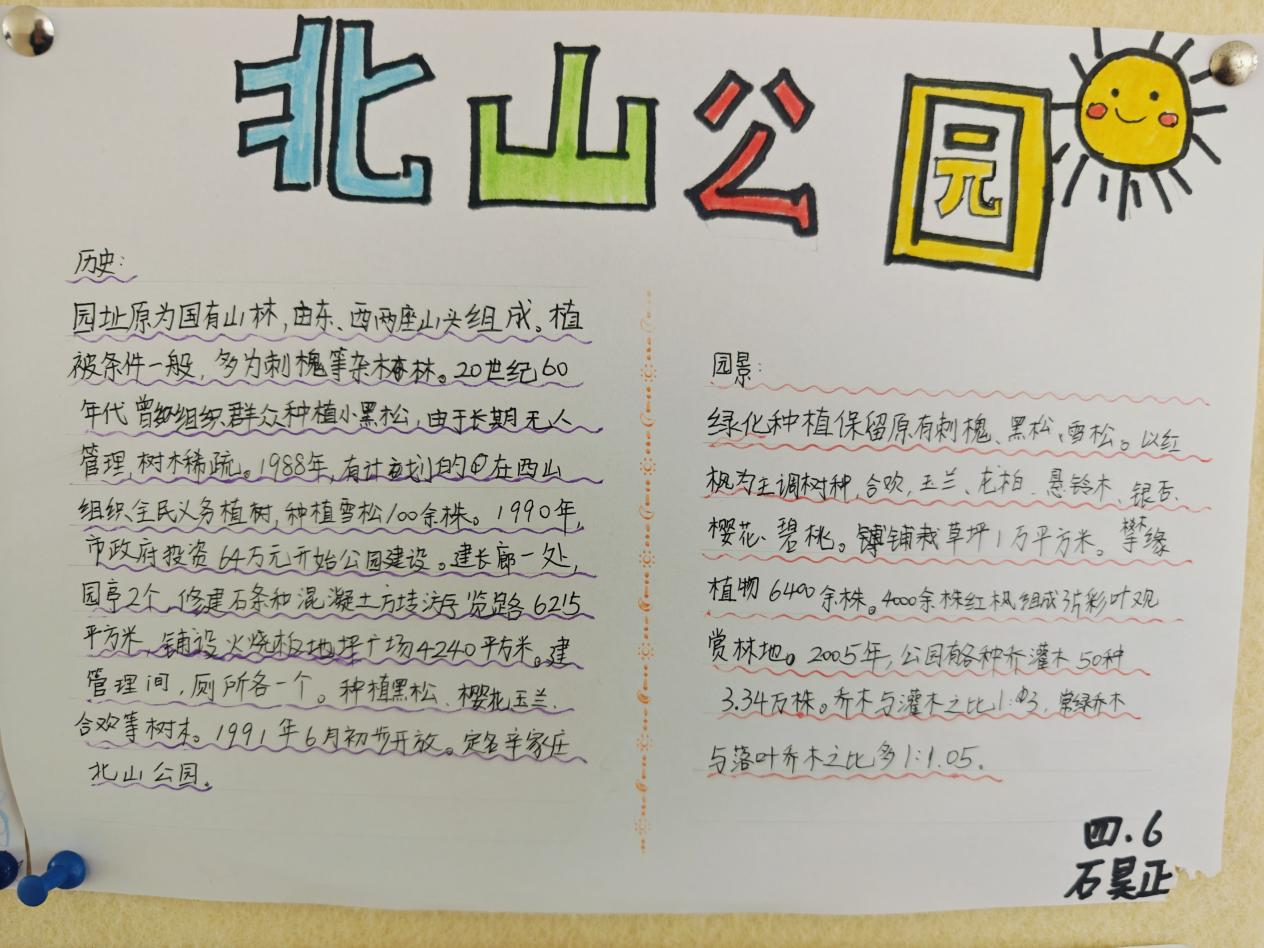 北山公园
历史:
园址原为国有山林,由东、西两座山头组成。植
被条件一般,多为刺槐等杂林。20世纪60
年代曾组织群众种植小黑松,由于长期无人
管理,树木稀疏。1988年,有计划的在西山
组织全民义务植树,种植雪松100余株。1990年,
市政府投资64万元开始公园建设。建长廊一处,
园亭2个,修建石条和混凝土方块游览路6215
平方米,铺设火烧板地坪广场4240平方米。建
管理间,厕所各一个。种植黑松、樱花、玉兰、
合欢等树木。1991年6月初步开放。定名辛家庄
北山公园。
园景:
绿化种植保留原有刺槐、黑松、雪松。以红
枫为主调树种,合欢,玉兰、龙柏、悬铃木、银杏、
樱花、碧桃。铺栽草坪1万平方米。攀缘
植物6400余株。4000余株红枫组成3片彩叶观
赏林地。2005年,公园有各种乔灌木50种
3.34万株。乔木与灌木之比1:3,常绿乔木
与落叶乔木之比多1:1.05.
四.6
石昊正